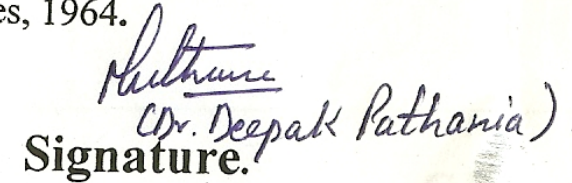 es, 1964.
(Dr. Deepak Pathania)
Signature.